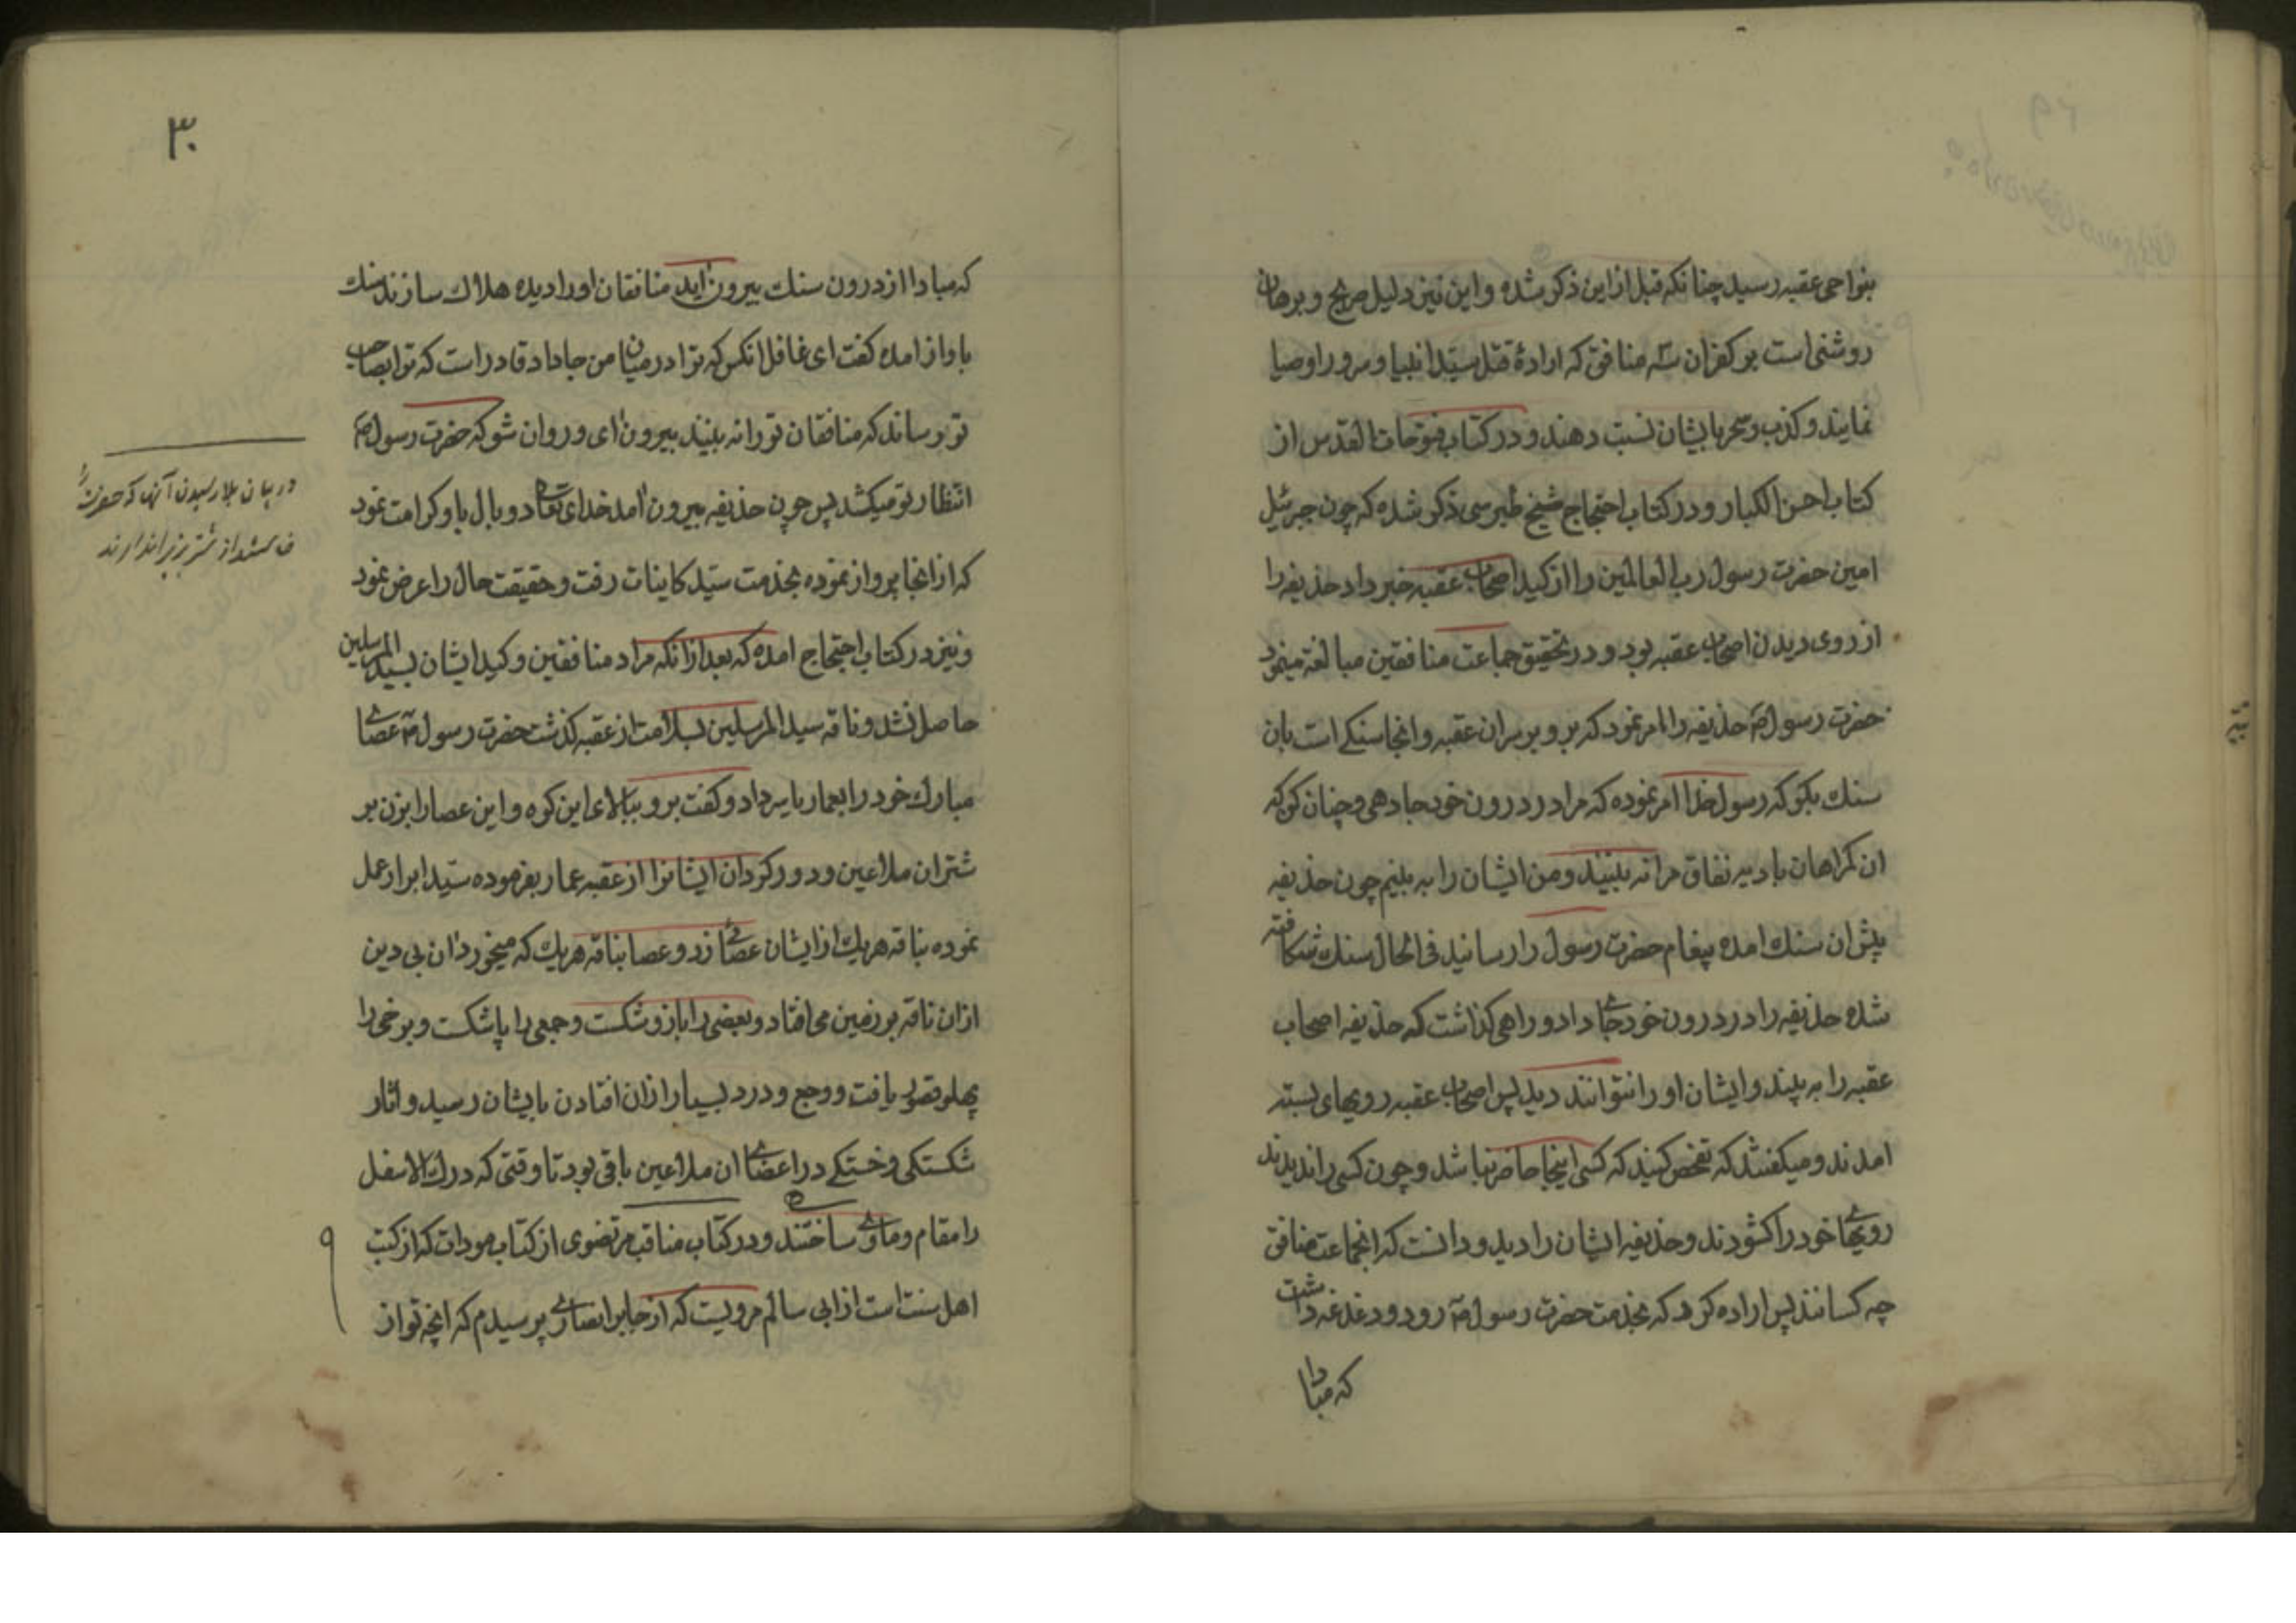 بنواحی عقبه رسید چنانکه قبل ازاین ذکر شده واین نیز دلیل صریح و برهان
روشنی است بر کفران سه منافق که ارادهٔ قتل سیّد انبیا و سرور اوصیا
نمایند و کذب و سحر بایشان نسبت دهند و در کتاب فتوحات القدس از
کتاب احسن الکبار و در کتاب احتجاج شیخ طبرسی ذکر شده که چون جبرئیل
امین حضرت رسول رب العالمین را از کید اصحاب عقبه خبر داد حذیفه را
از روی دیدن اصحاب عقبه بود و در تحقیق جماعت منافقین مبالغه مینمود
حضرت رسول ص حذیفه را امر نمود که برو بر سران عقبه و انجا سنکے است بان
سنك بکو که رسول خدا امر نموده که مرا در درون خود جا دهی و چنان کو که
ان کمراهان بادیه نفاق مرا نه بینند و من ایشان را به بینم چون حذیفه
پیش ان سنك امده پیغام حضرت رسول را رسانید فی الحال سنك شکافته
شده حذیفه را در درون خود جاے داد و راهی کذاشت که حذیفه اصحاب
عقبه را به بیند و ایشان او را نتوانند دید پس اصحاب عقبه رویهای بسته
امدند و میکفتند که تفحص کنید که کسی اینجا حاضر نباشد و چون کسی را ندیدند
رویهاے خود را کشودند و حذیفه ایشان را دید و دانست که انجماعت منافق
چه کسانند پس اراده کرد که بخدمت حضرت رسول ص رود و دغدغه داشت
که مبادا
۳۰
که مبادا از درون سنك بیرون اید منافقان او را دیده هلاك سازند سنك
باواز امده کفت ای غافل انکس که ترا در میان من جا داد قادر است که ترا بصاحب
تو رساند که منافقان تو را نه بینند بیرون ای و روان شو که حضرت رسول ص
انتظار تو میکشد پس چون حذیفه بیرون امد خدای تعالی دو بال باو کرامت نمود
که از انجا پرواز نموده بخدمت سیّد کاینات رفت و حقیقت حال را عرض نمود
و نیز در کتاب احتجاج امده که بعد از انکه مراد منافقین و کید ایشان بسید المرسلین
حاصل نشد و ناقه سید المرسلین بسلامت از عقبه کذشت حضرت رسول ص عصاے
مبارك خود را بعمار یاسر داد و کفت برو ببالای این کوه و این عصا را بزن بر
شتران ملاعین و دور کردان ایشانرا از عقبه عمار بفرموده سیّد ابرار عمل
نموده بناقه هریك از ایشان عصائے زد و عصا بناقه هریك که میخورد ان بی دین
ازان ناقه بر زمین می افتاد و بعضی را بازو شکست و جمعی را پا شکست و برخی را
پهلو قصور یافت و وجع و درد بسیار ازان افتادن بایشان رسید و اثار
شکستکی و خستکے در اعضاے ان ملاعین باقی بود تا وقتی که درك الاسفل
را مقام و ماوے ساختند و در کتاب مناقب مرتضوی از کتاب مودات که از کتب
اهل سنت است از ابی سالم مرویست که از جابر انصارے پرسیدم که انچه تو از
در بیان بلا رسیدن آنها که حضرت را
از شتر بزیر اندازند